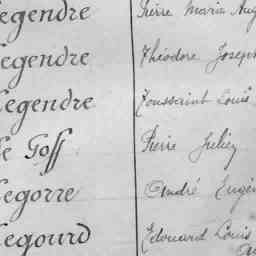 Legendre Pierre Marie Aug
Legendre Théodore Joseph
Legendre Toussaint Louis
Le Goff Pierre Julien
Legorre André Eugèn
Legourd Edouard Louis